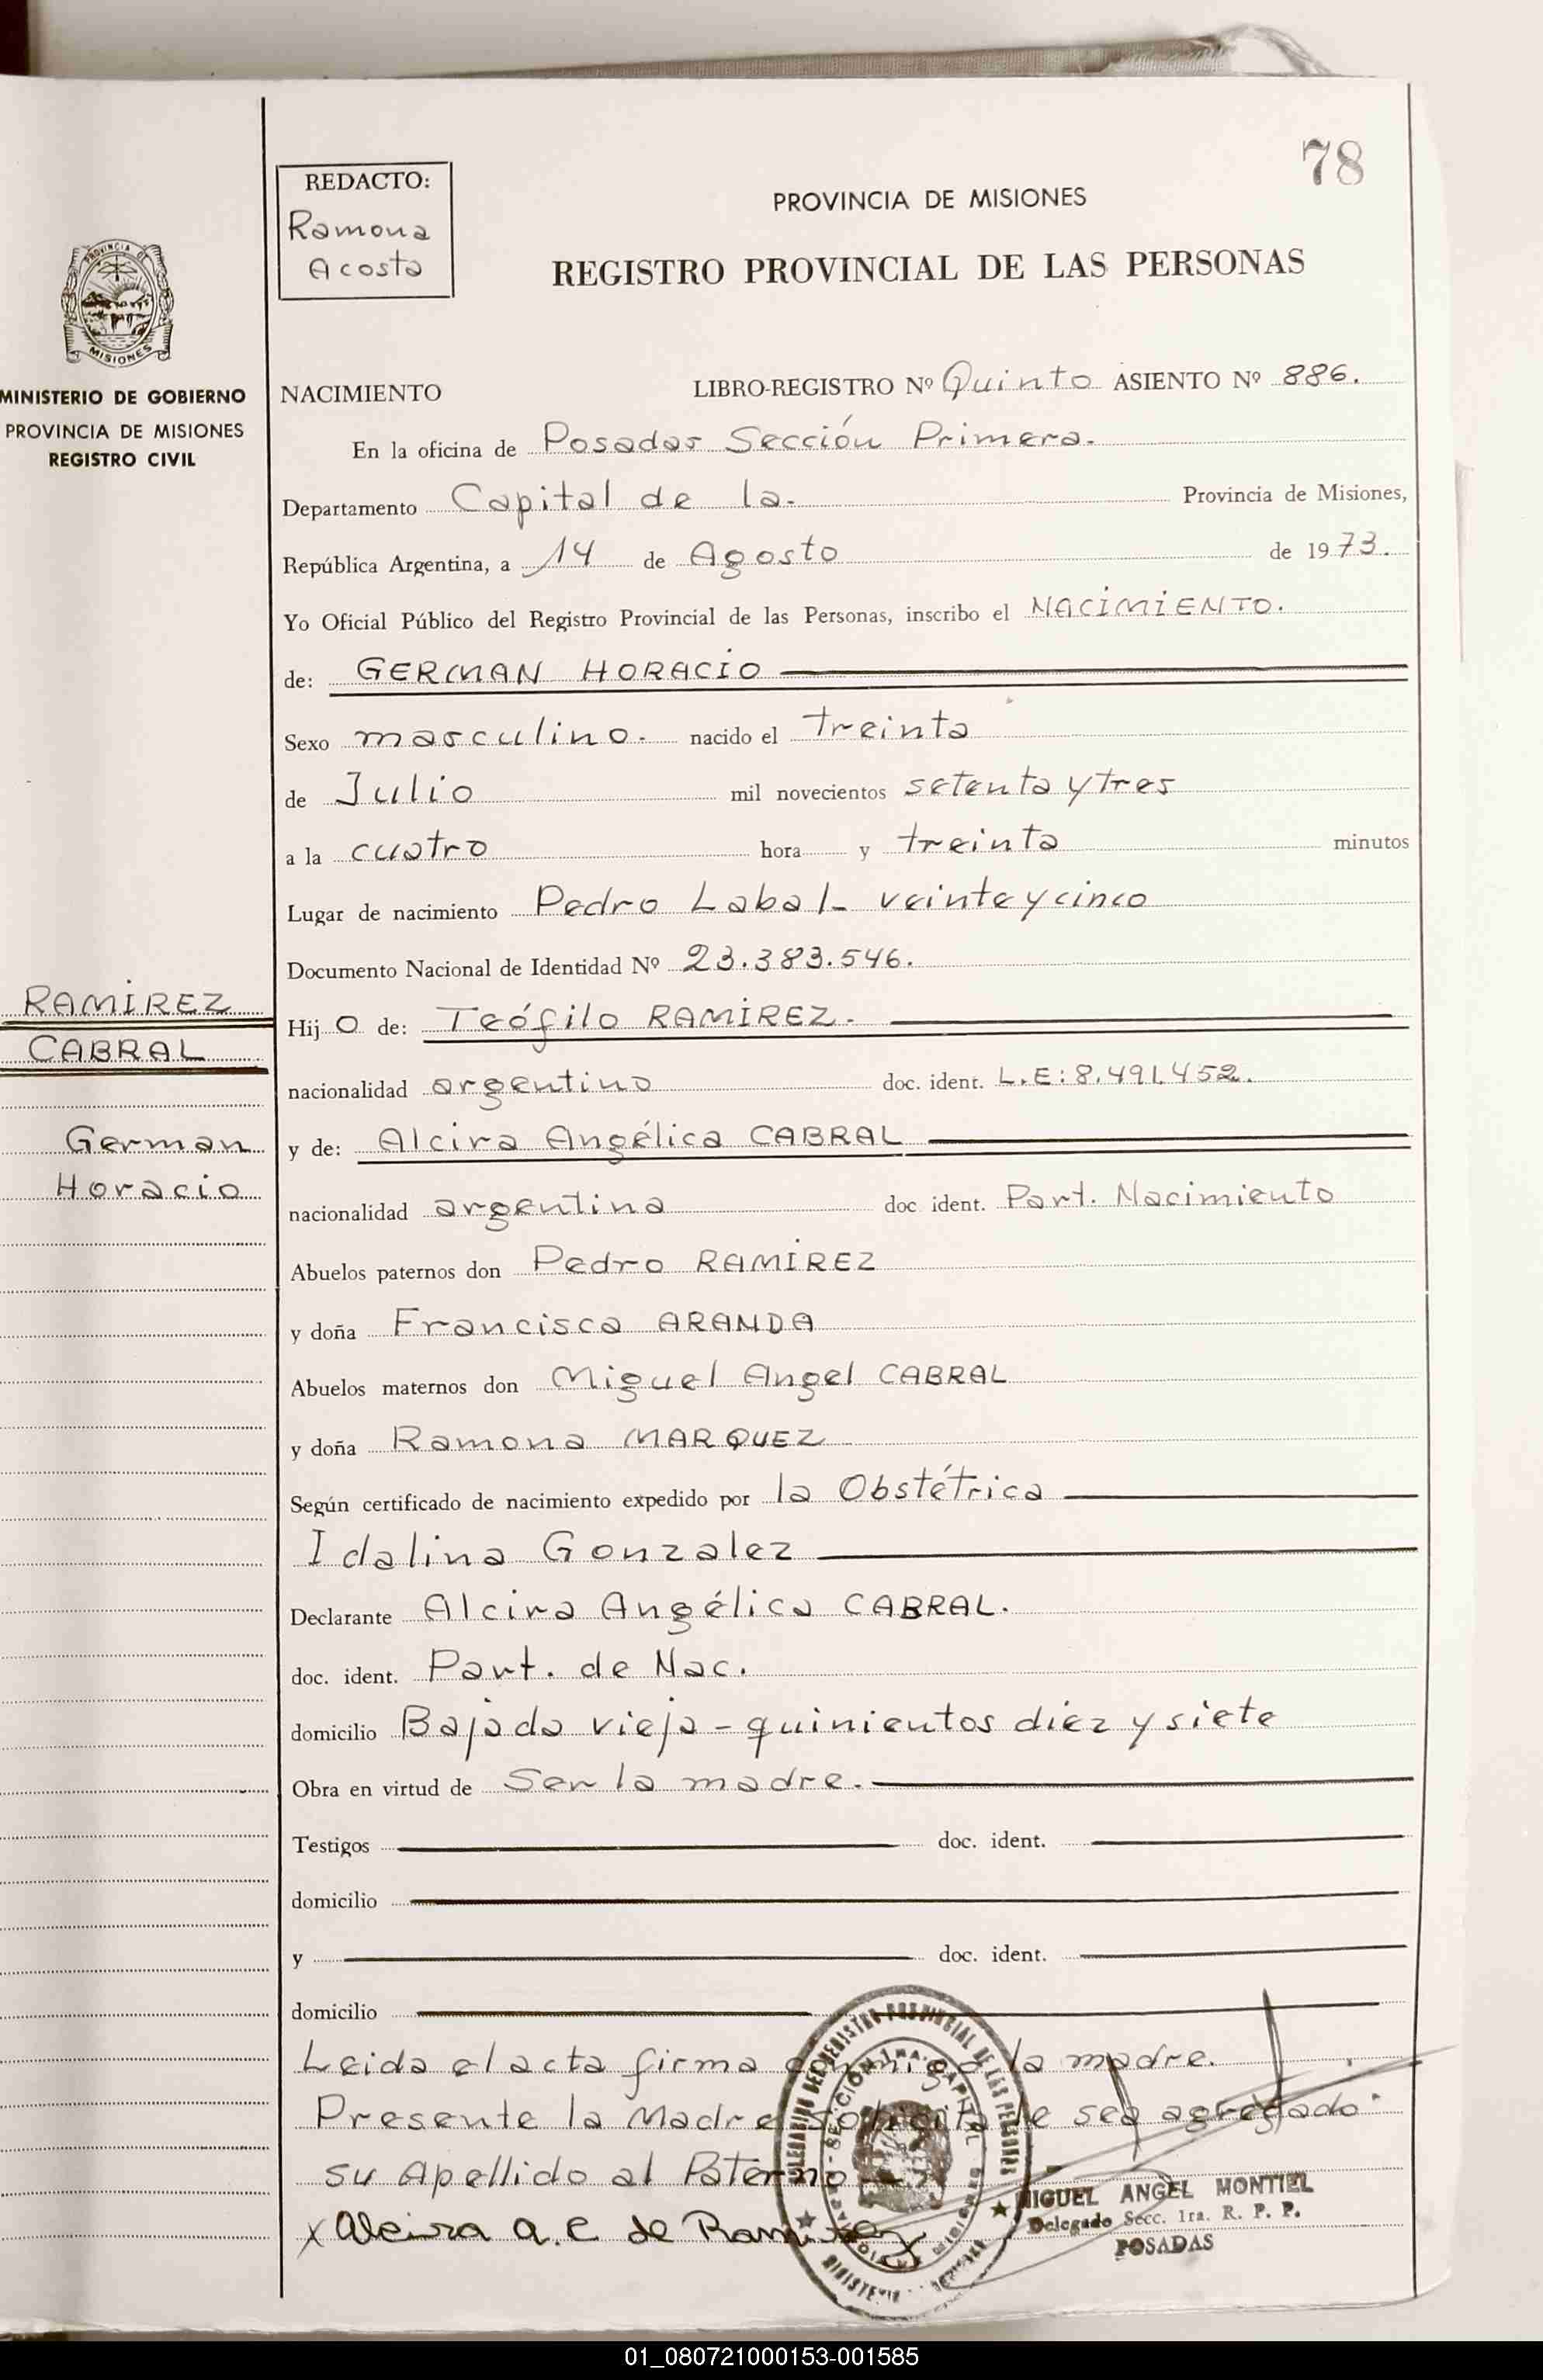 78
REDACTO:
Ramona
Acosta
PROVINCIA DE MISIONES
REGISTRO PROVINCIAL DE LAS PERSONAS
PROVINCIA DE
MISIONES
MINISTERIO DE GOBIERNO
PROVINCIA DE MISIONES
REGISTRO CIVIL
NACIMIENTO LIBRO-REGISTRO Nº Quinto ASIENTO Nº 886.
En la oficina de Posadas Sección Primera.
Departamento Capital de la. Provincia de Misiones,
República Argentina, a 14 de Agosto de 1973.
Yo Oficial Público del Registro Provincial de las Personas, inscribo el NACIMIENTO.
de: GERMAN HORACIO
Sexo masculino. nacido el treinta
de Julio mil novecientos setenta y tres
a la cuatro hora y treinta minutos
Lugar de nacimiento Pedro Labal- veinte y cinco
Documento Nacional de Identidad Nº 23.383.546.
RAMIREZ
CABRAL
German
Horacio
Hij o de: Teófilo RAMIREZ.
nacionalidad argentino doc. ident. L.E: 8.491.452.
y de: Alcira Angélica CABRAL
nacionalidad argentina doc ident. Part. Nacimiento
Abuelos paternos don Pedro RAMIREZ
y doña Francisca ARANDA
Abuelos maternos don Miguel Angel CABRAL
y doña Ramona MARQUEZ
Según certificado de nacimiento expedido por la Obstétrica
Idalina Gonzalez
Declarante Alcira Angélica CABRAL.
doc. ident. Part. de Nac.
domicilio Bajada vieja - quinientos diez y siete
Obra en virtud de Ser la madre.
Testigos doc. ident.
domicilio
y doc. ident.
domicilio
Leida el acta firma conmigo la madre.
Presente la Madre solicita le sea agregado
su Apellido al Paterno
x Alcira A. C de Ramirez
MIGUEL ANGEL MONTIEL
Delegado Secc. 1ra. R. P. P.
POSADAS
01_080721000153-001585